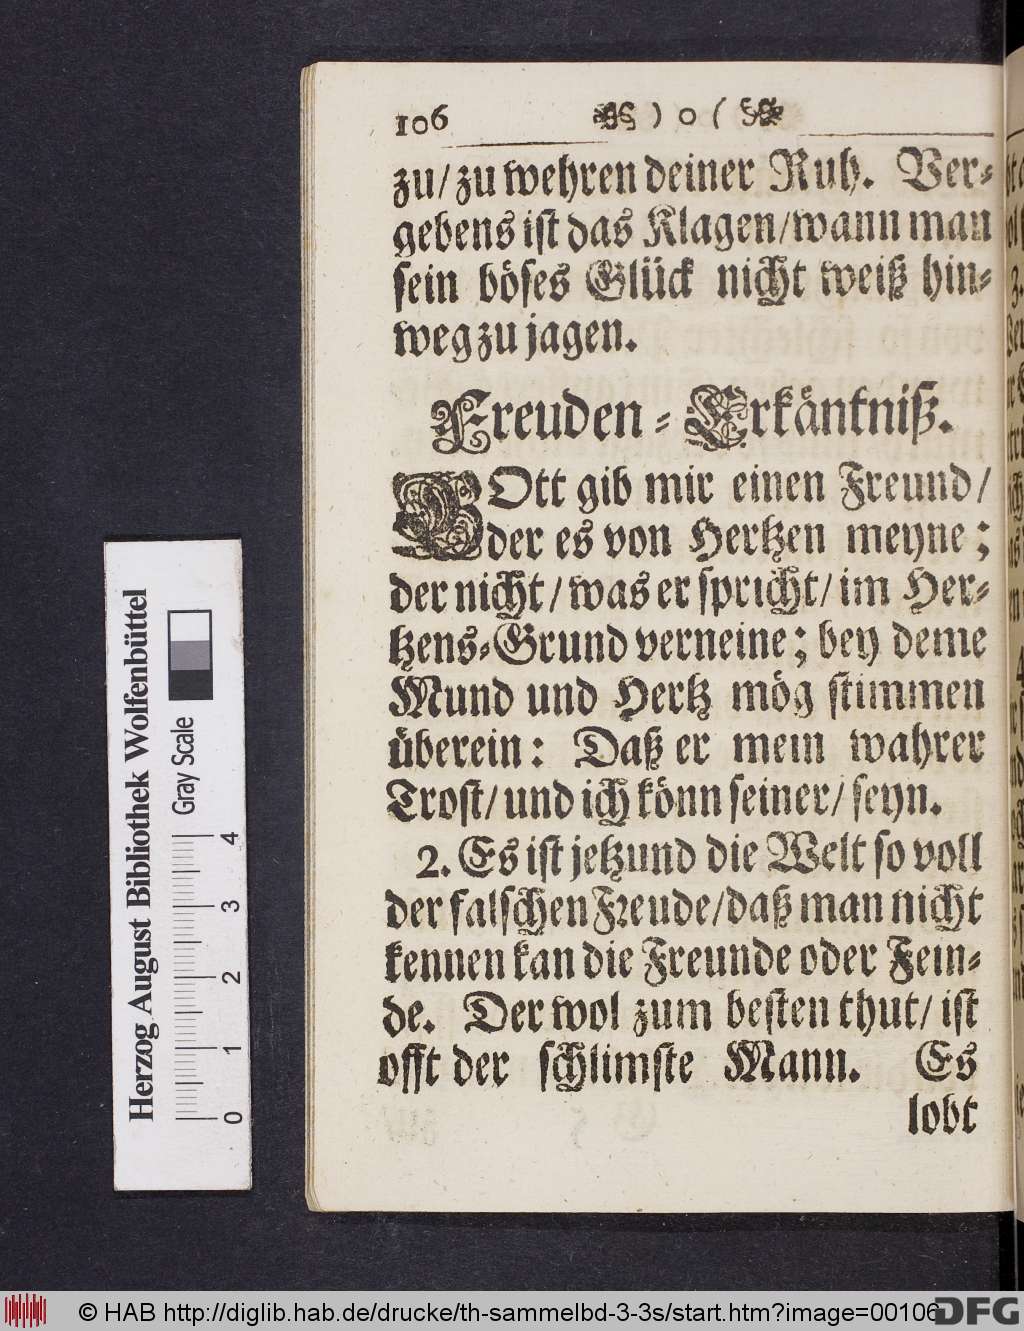 106 ) o (
zu/ zu wehren deiner Ruh. Ver-
gebens ist das Klagen/ wann man
sein böses Glück nicht weiß hin-
weg zu jagen.
Freuden-Erkäntniß.
GOtt gib mir einen Freund/
der es von Hertzen meyne;
der nicht/ was er spricht/ im Her-
tzens-Grund verneine; bey deme
Mund und Hertz mög stimmen
überein: Daß er mein wahrer
Trost/ und ich könn seiner/ seyn.
2. Es ist jetzund die Welt so voll
der falschen Freude/ daß man nicht
kennen kan die Freunde oder Fein-
de. Der wol zum besten thut/ ist
offt der schlimste Mann. Es
lobt
Herzog August Bibliothek Wolfenbüttel
Gray Scale
0 1 2 3 4
© HAB http://diglib.hab.de/drucke/th-sammelbd-3-3s/start.htm?image=00106
DFG